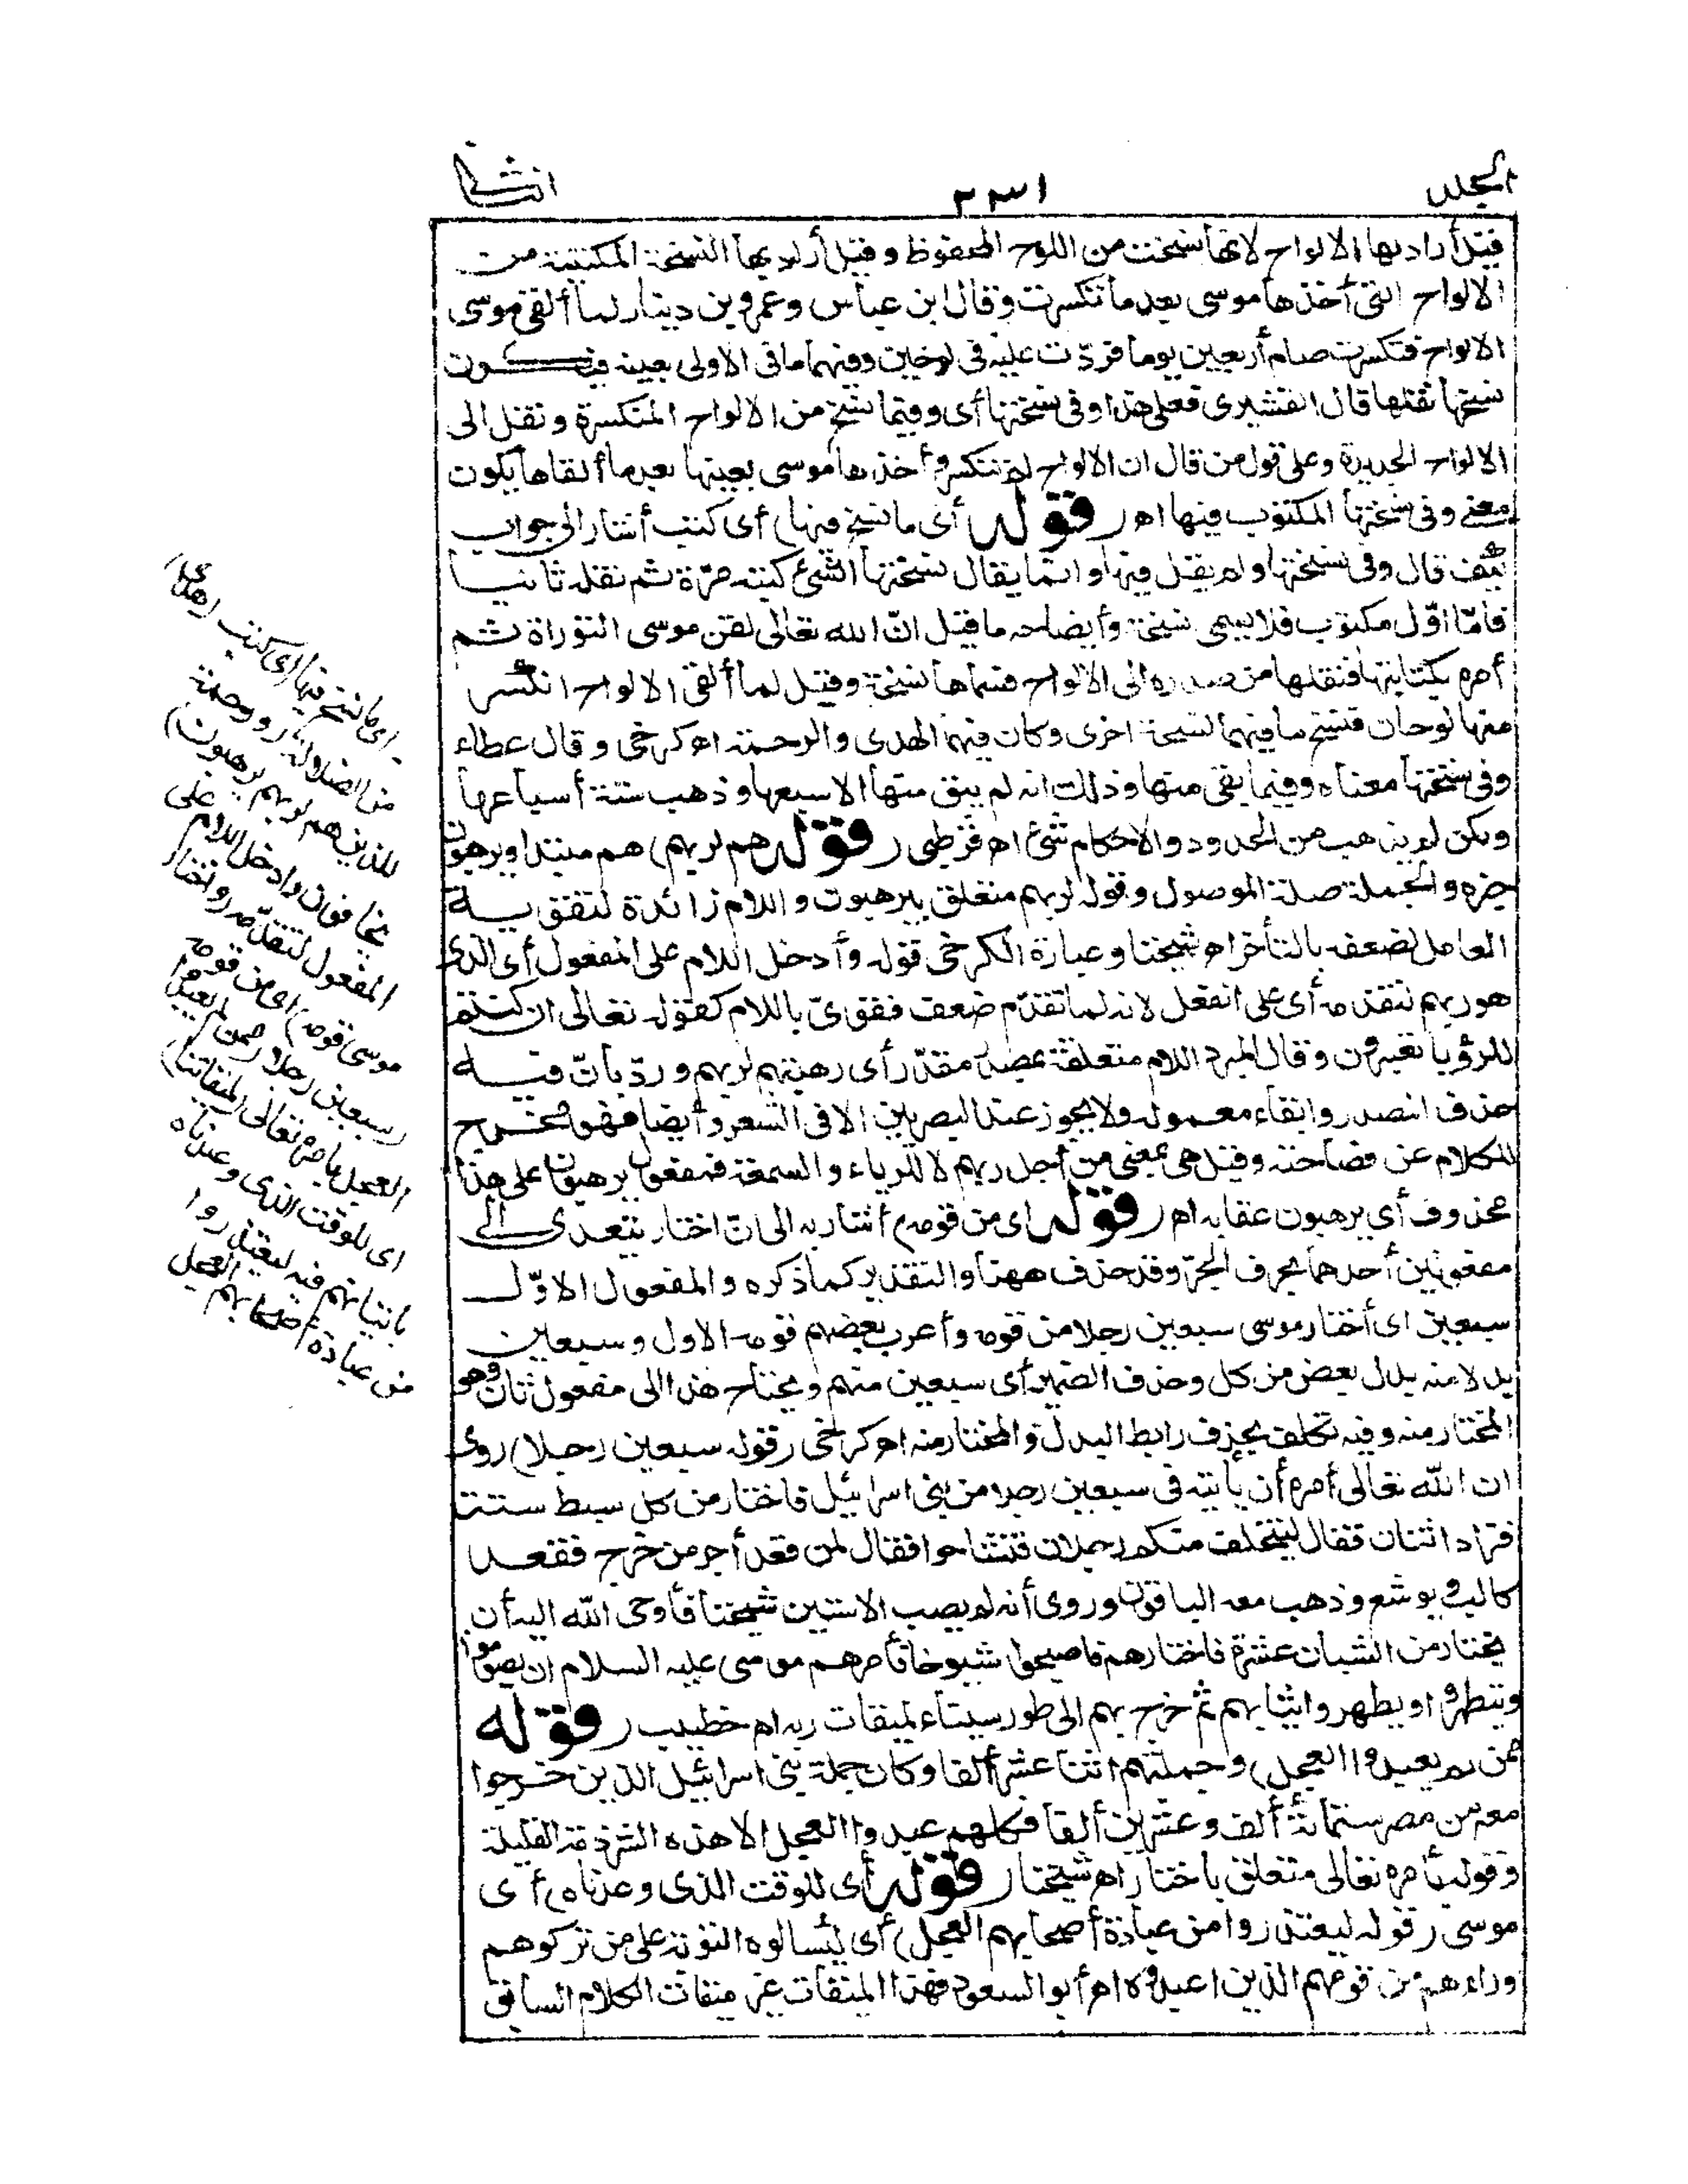 المجلد
٢٣١
الثانى
قيل أراد بها الالواح لانها نسخت من اللوح المحفوظ وقيل أراد بها النسخة المكتتبة من
الالواح التى أخذها موسى بعد ما تكسرت وقال ابن عباس وعمرو بن دينار لما ألقى موسى
الالواح فتكسرت صام أربعين يوما فردّت عليه فى لوحين وفيهما ما فى الاولى بعينه فيكون
نسخها نقلها قال القشيرى فعلى هذا وفى نسختها أى وفيما نسخ من الالواح المتكسرة ونقل الى
الالواح الجديدة وعلى قول من قال ان الالواح لم تتكسر وأخذها موسى بعينها بعد ما ألقاها يكون
معنى وفى نسختها المكتوب فيها اهـ (قوله أى ما نسخ فيها) أى كتب أشار الى جواب
كيف قال وفى نسختها ولم يقل فيها وانما يقال نسختها الشئ كتبته مرّة ثم نقله ثانيا
فامّا اوّل مكتوب فلا يسمى نسخة وأيضاحه ما قيل انّ الله تعالى لقن موسى التوراة ثم
أمره بكتابتها فنقلها من صدره الى الالواح فسماها نسخة وقيل لما ألقى الالواح انكسر
منها لوحان فنسخ ما فيهما نسخة اخرى وكان فيهما الهدى والرحمة اهـ كرخى وقال عطاء
وفى نسختها معناه وفيما بقى منها وذلك انه لم يبق منها الا سبعها وذهب ستة أسباعها
ولكن لم يذهب من الحدود والاحكام شئ اهـ قرطبى (قوله هم لربهم) هم مبتدا ويرهبون
خبره والجملة صلة الموصول وقوله لربهم متعلق بيرهبون واللام زائدة لتقوية
العامل لضعفه بالتأخر اهـ شيخنا وعبارة الكرخى قوله وأدخل اللام على المفعول أى الذى
هو ربهم لتقدمه أى على الفعل لانه لما تقدّم ضعف فقوىّ باللام كقوله تعالى ان كنتم
للرؤيا تعبرون وقال المبرد اللام متعلقة بمصدر مقدّر أى رهبتهم لربهم وردّ بانّ فيه
حذف المصدر وابقاء معموله ولا يجوز عند البصريين الا فى الشعر وأيضا فهو مخرج
للكلام عن فصاحته وقيل هى بمعنى من أجل ربهم لا للرياء والسمعة فمفعول يرهبون على هذا
محذوف أى يرهبون عقابه اهـ (قوله اى من قومه) أشار به الى انّ اختار يتعدى الى
مفعولين أحدهما بحرف الجرّ وقد حذف ههنا والتقدير كما ذكره والمفعول الاوّل
سبعين اى أختار موسى سبعين رجلا من قومه وأعرب بعضهم قومه الاول وسبعين
بدلا منه بدل بعض من كل وحذف الضمير أى سبعين منهم ويحتاج هذا الى مفعول ثان وهو
المختار منه وفيه تكلف بحذف رابط البدل والمختار منه اهـ كرخى (قوله سبعين رجلا) روى
ان الله تعالى أمره أن يأتيه فى سبعين رجلا من بنى اسرائيل فاختار من كل سبط ستة
فزاد اثنان فقال ليتخلف منكم رجلان فتشاحوا فقال لمن قعد أجر من خرج فقعد
كالب ويوشع وذهب معه الباقون وروى أنه لم يصب الا ستين شيخا فأوحى الله اليه أن
يختار من الشبان عشرة فاختارهم فاصبحوا شيوخا فأمرهم موسى عليه السلام ان يصوموا
ويتطهروا ويطهروا ثيابهم ثم خرج بهم الى طور سيناء لميقات ربه اهـ خطيب (قوله
ممن لم يعبدوا العجل) وجملتهم اثنا عشر ألفا وكان جملة بنى اسرائيل الذين خرجوا
معه من مصر ستمائة ألف وعشرين ألفا فكلهم عبدوا العجل الا هذه الشرذمة القليلة
وقوله بأمره تعالى متعلق باختار اهـ شيخنا (قوله أى للوقت الذى وعدناه) أى
موسى (قوله ليعتذروا من عبادة أصحابهم العجل) أى ليسألوه التوبة على من تركوهم
وراءهم من قومهم الذين اعبدوه اهـ أبو السعود فهذا الميقات غير ميقات الكلام السابق
اى ما نسخ فيها اى كتب (هدى)
من الضلالة (ورحمة
للذين هم لربهم يرهبون)
يخافون وادخل اللام على
المفعول لتقدّمه (واختار
موسى قومه) اى من قومه
(سبعين رجلا) ممن لم يعبدوا
العجل بامره تعالى (لميقاتنا)
اى للوقت الذى وعدناه
باتيانهم فيه ليعتذروا
من عبادة أصحابهم العجل